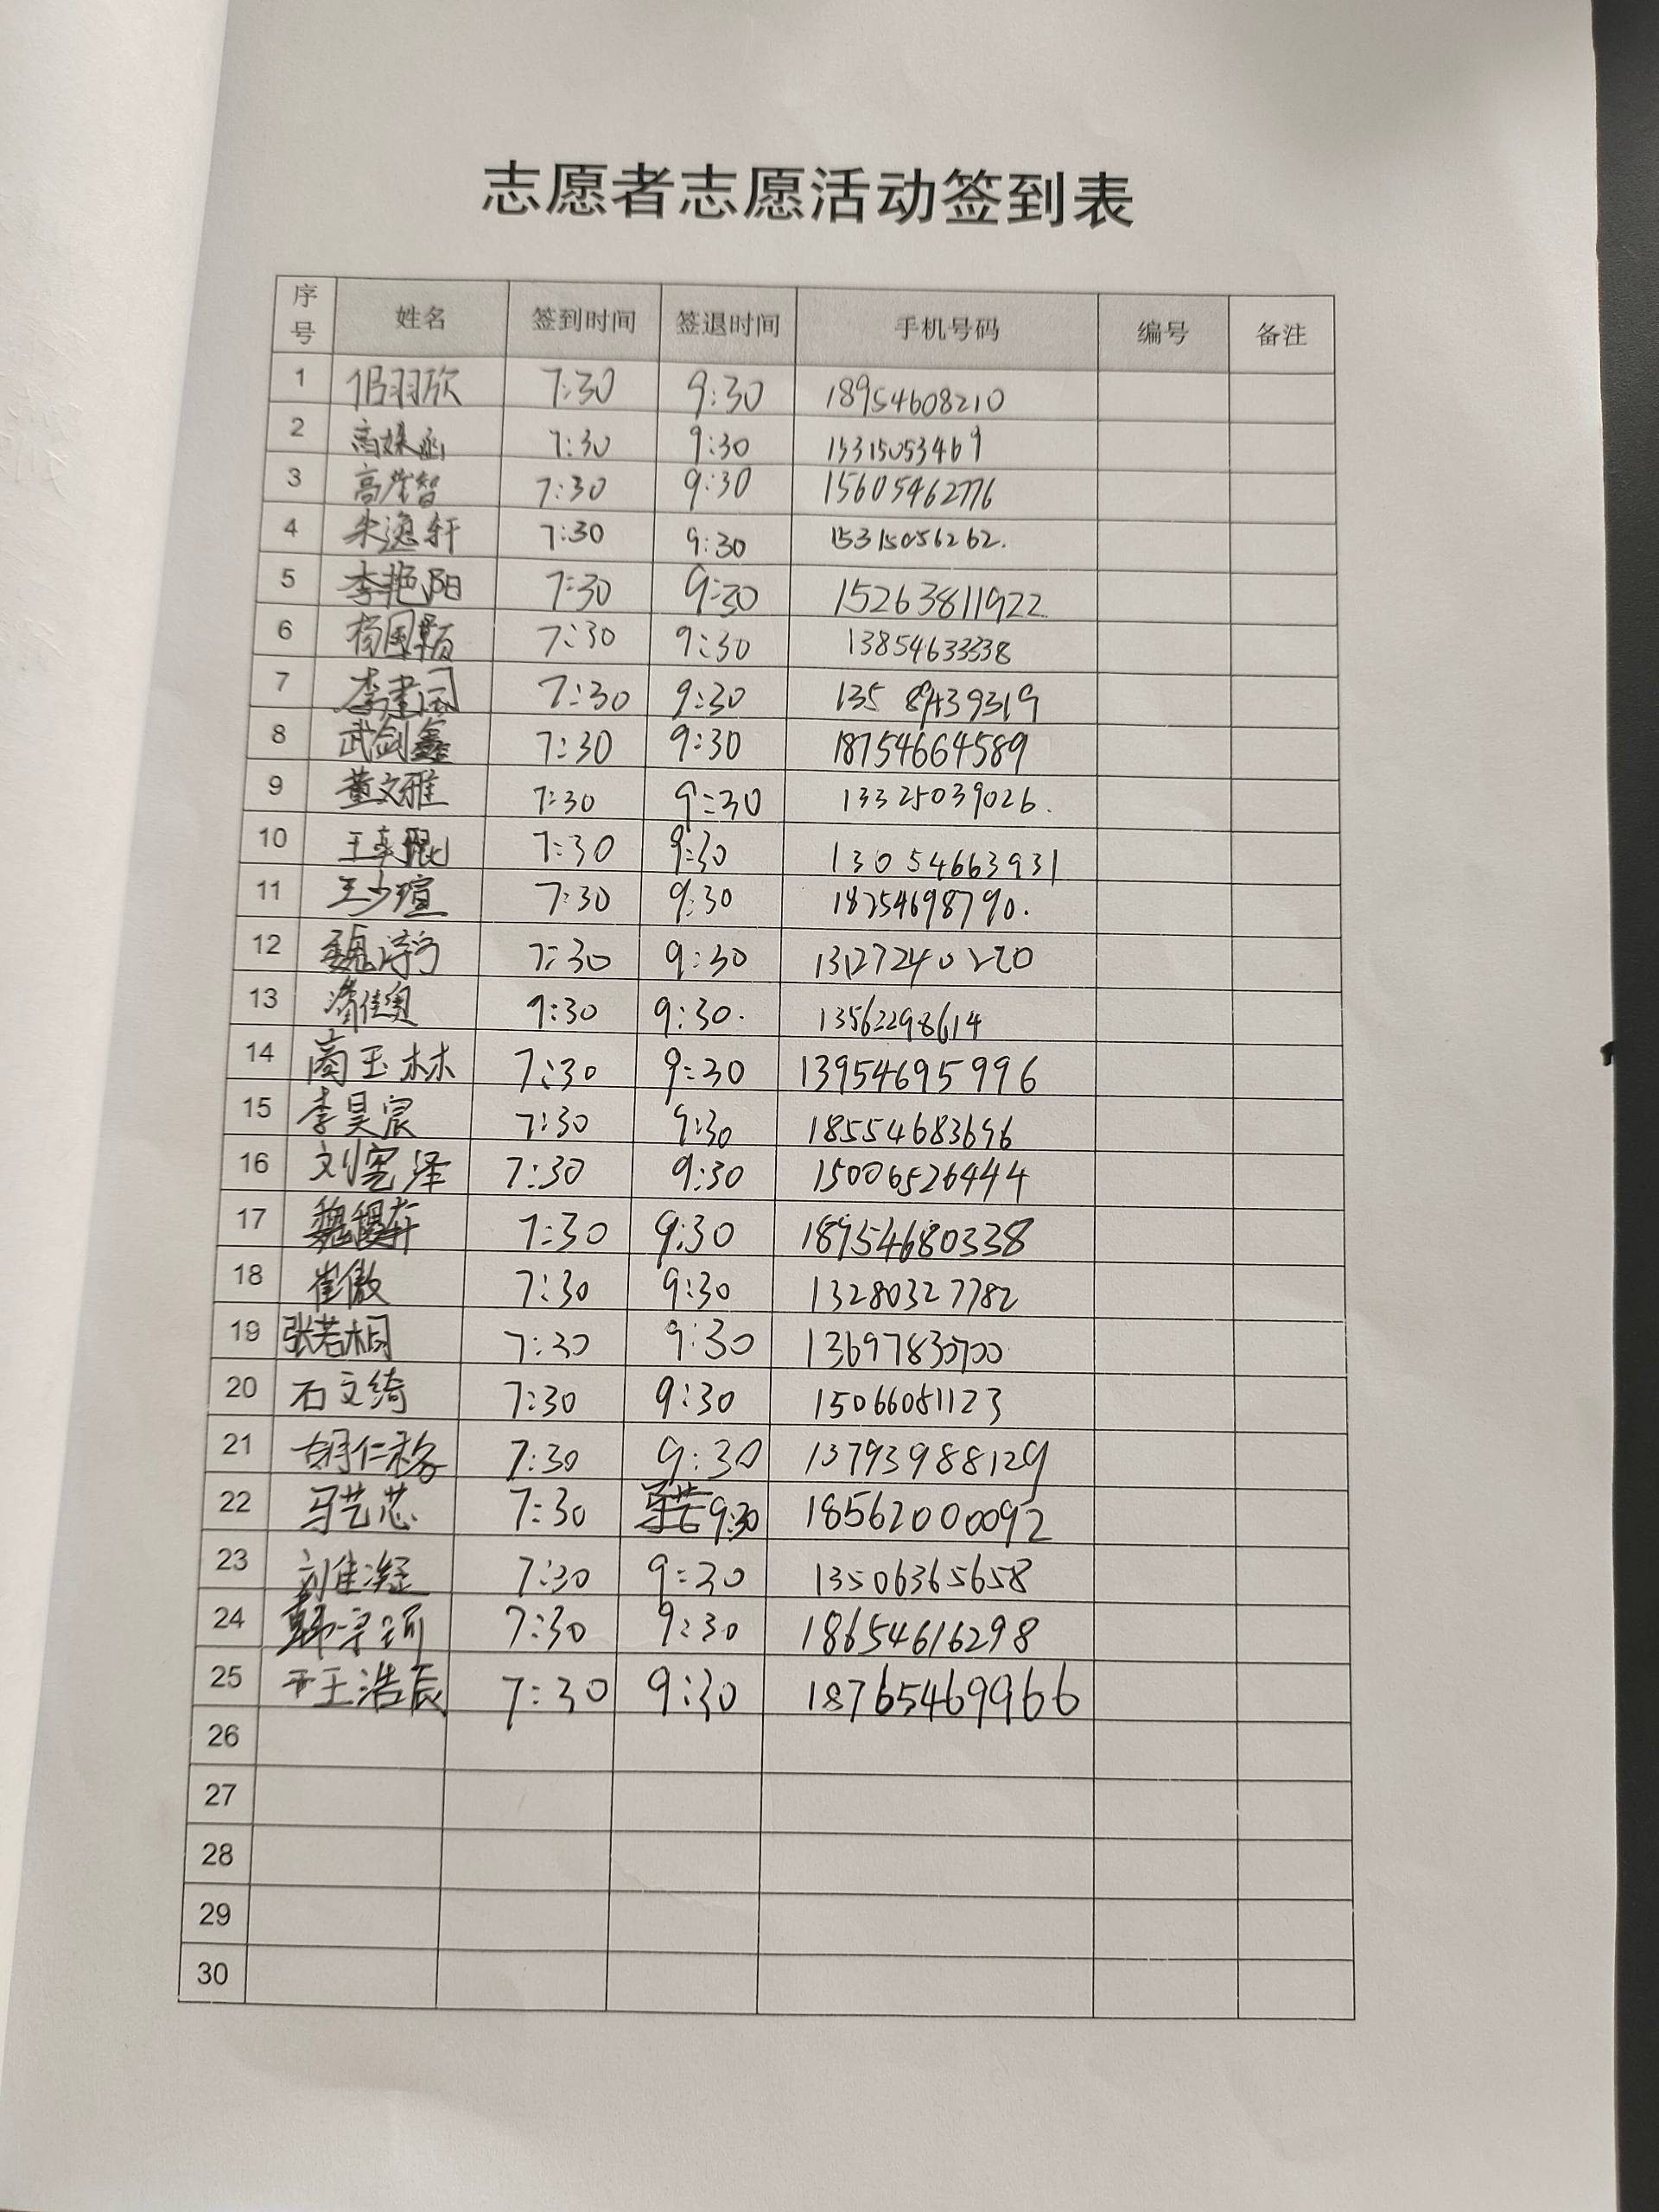 志愿者志愿活动签到表
序号 姓名 签到时间 签退时间 手机号码 编号 备注
1 羽欣 7:30 9:30 18954608210
2 高 7:30 9:30 15315053469
3 高 智 7:30 9:30 15605462776
4 朱逸轩 7:30 9:30 15315056262.
5 李艳阳 7:30 9:30 15263811922
6 杨国颖 7:30 9:30 13854633338
7 李建国 7:30 9:30 135 89439319
8 武剑鑫 7:30 9:30 18754664589
9 董文雅 7:30 9:30 13325039026.
10 王 7:30 9:30 13054663931
11 王少瑄 7:30 9:30 18754698790.
12 魏 7:30 9:30
13 佳奥 9:30 9:30. 13562298614
14 商玉林 7:30 9:30 13954695996
15 李昊宸 7:30 9:30 18554683696
16 刘宪泽 7:30 9:30 15006526444
17 魏 轩 7:30 9:30 18954680338
18 崔傲 7:30 9:30 13280327782
19 张若桐 7:30 9:30 13697830700
20 石文绮 7:30 9:30 15066081123
21 胡仁 7:30 9:30 13793988129
22 马艺芯 7:30 马艺 9:30 18562000092
23 刘佳凝 7:30 9:30 13506365658
24 韩 7:30 9:30 18654616298
25 王浩辰 7:30 9:30 18765469966
26
27
28
29
30